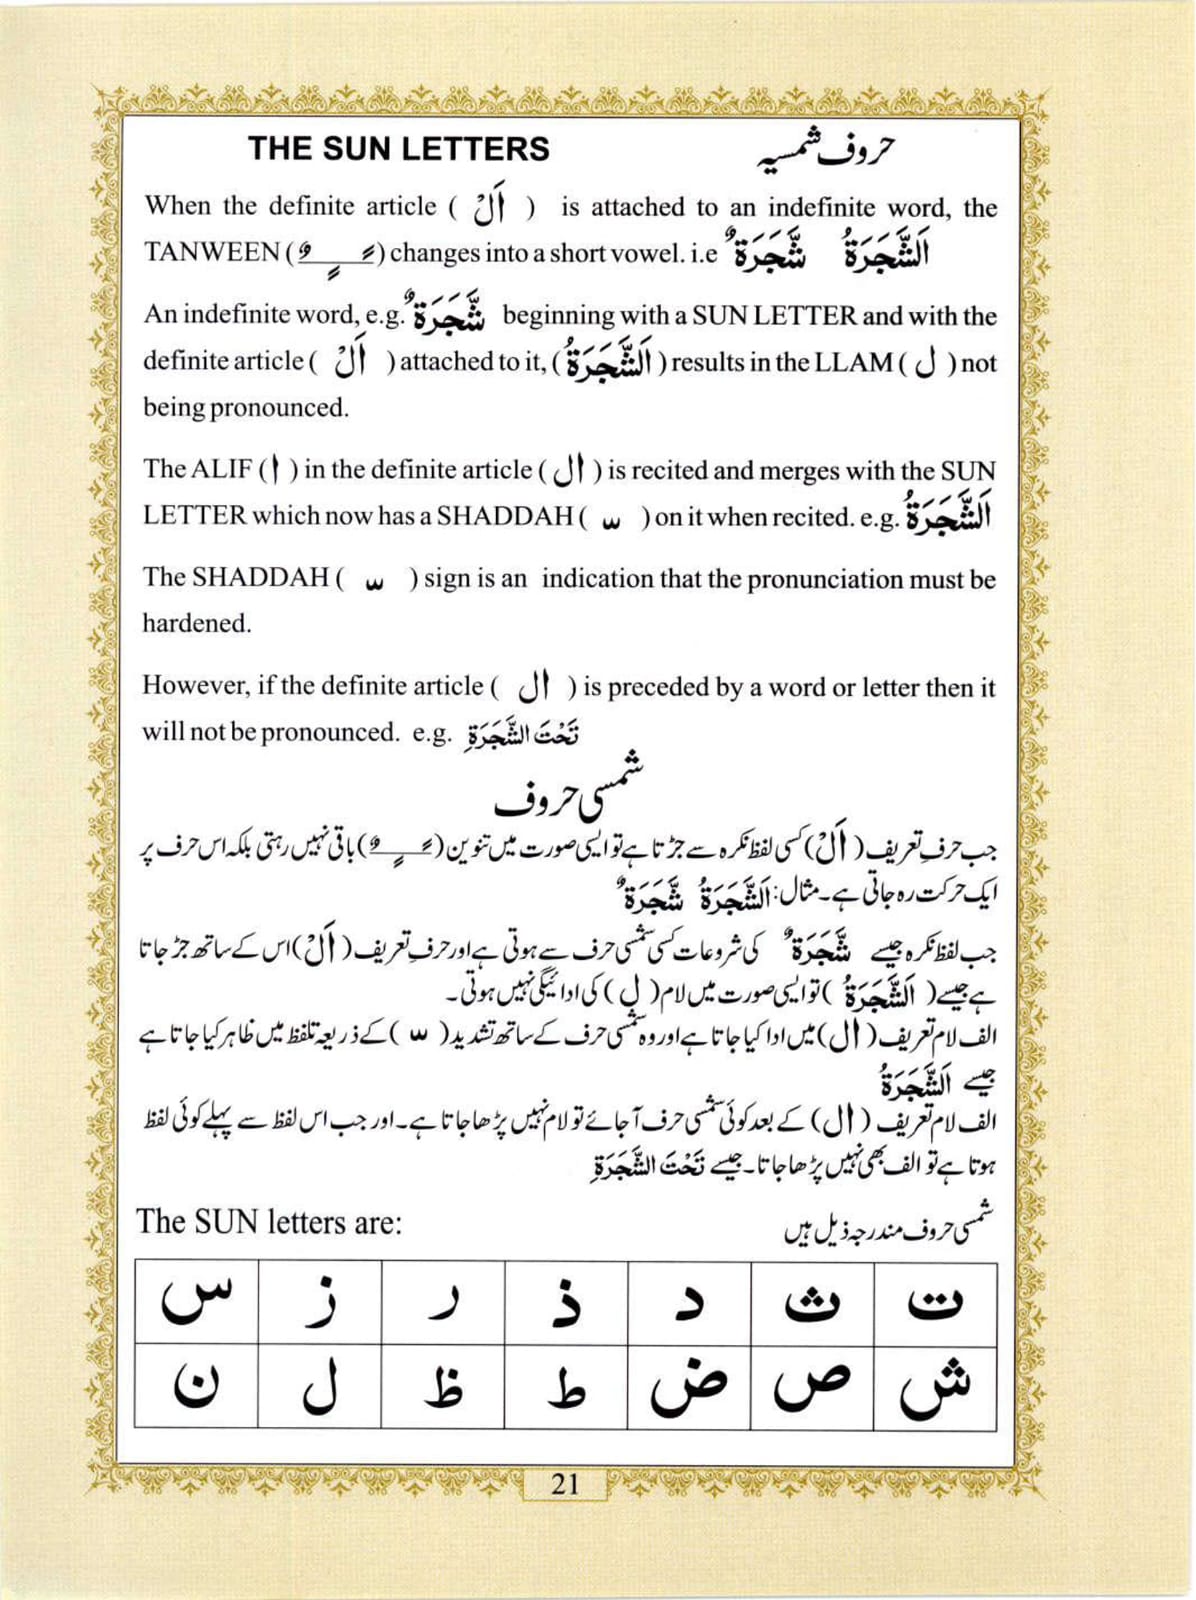 THE SUN LETTERS حروف شمسیہ
When the definite article ( اَلْ ) is attached to an indefinite word, the
TANWEEN ( ـًـٍـٌ ) changes into a short vowel. i.e شَّجَرَةٌ اَلشَّجَرَةُ
An indefinite word, e.g. شَّجَرَةٌ beginning with a SUN LETTER and with the
definite article ( اَلْ ) attached to it, ( اَلشَّجَرَةُ ) results in the LLAM ( ل ) not
being pronounced.
The ALIF ( ا ) in the definite article ( ال ) is recited and merges with the SUN
LETTER which now has a SHADDAH ( ّ ) on it when recited. e.g. اَلشَّجَرَةُ
The SHADDAH ( ّ ) sign is an indication that the pronunciation must be
hardened.
However, if the definite article ( ال ) is preceded by a word or letter then it
will not be pronounced. e.g. تَحْتَ الشَّجَرَةِ
شمسی حروف
جب حرفِ تعریف ( اَلْ ) کسی لفظ نکرہ سے جڑتا ہے تو ایسی صورت میں تنوین ( ـًـٍـٌ ) باقی نہیں رہتی بلکہ اس حرف پر
ایک حرکت رہ جاتی ہے۔ مثال: اَلشَّجَرَةُ شَّجَرَةٌ
جب لفظ نکرہ جیسے شَّجَرَةٌ کی شروعات کسی شمسی حرف سے ہوتی ہے اور حرفِ تعریف ( اَلْ ) اس کے ساتھ جڑ جاتا
ہے جیسے ( اَلشَّجَرَةُ ) تو ایسی صورت میں لام ( ل ) کی ادائیگی نہیں ہوتی۔
الف لام تعریف ( ال ) میں ادا کیا جاتا ہے اور وہ شمسی حرف کے ساتھ تشدید ( ّ ) کے ذریعہ تلفظ میں ظاہر کیا جاتا ہے
جیسے اَلشَّجَرَةُ
الف لام تعریف ( ال ) کے بعد کوئی شمسی حرف آ جائے تو لام نہیں پڑھا جاتا ہے۔ اور جب اس لفظ سے پہلے کوئی لفظ
ہوتا ہے تو الف بھی نہیں پڑھا جاتا۔ جیسے تَحْتَ الشَّجَرَةِ
The SUN letters are: شمسی حروف مندرجہ ذیل ہیں
ت ث د ذ ر ز س
ش ص ض ط ظ ل ن
21